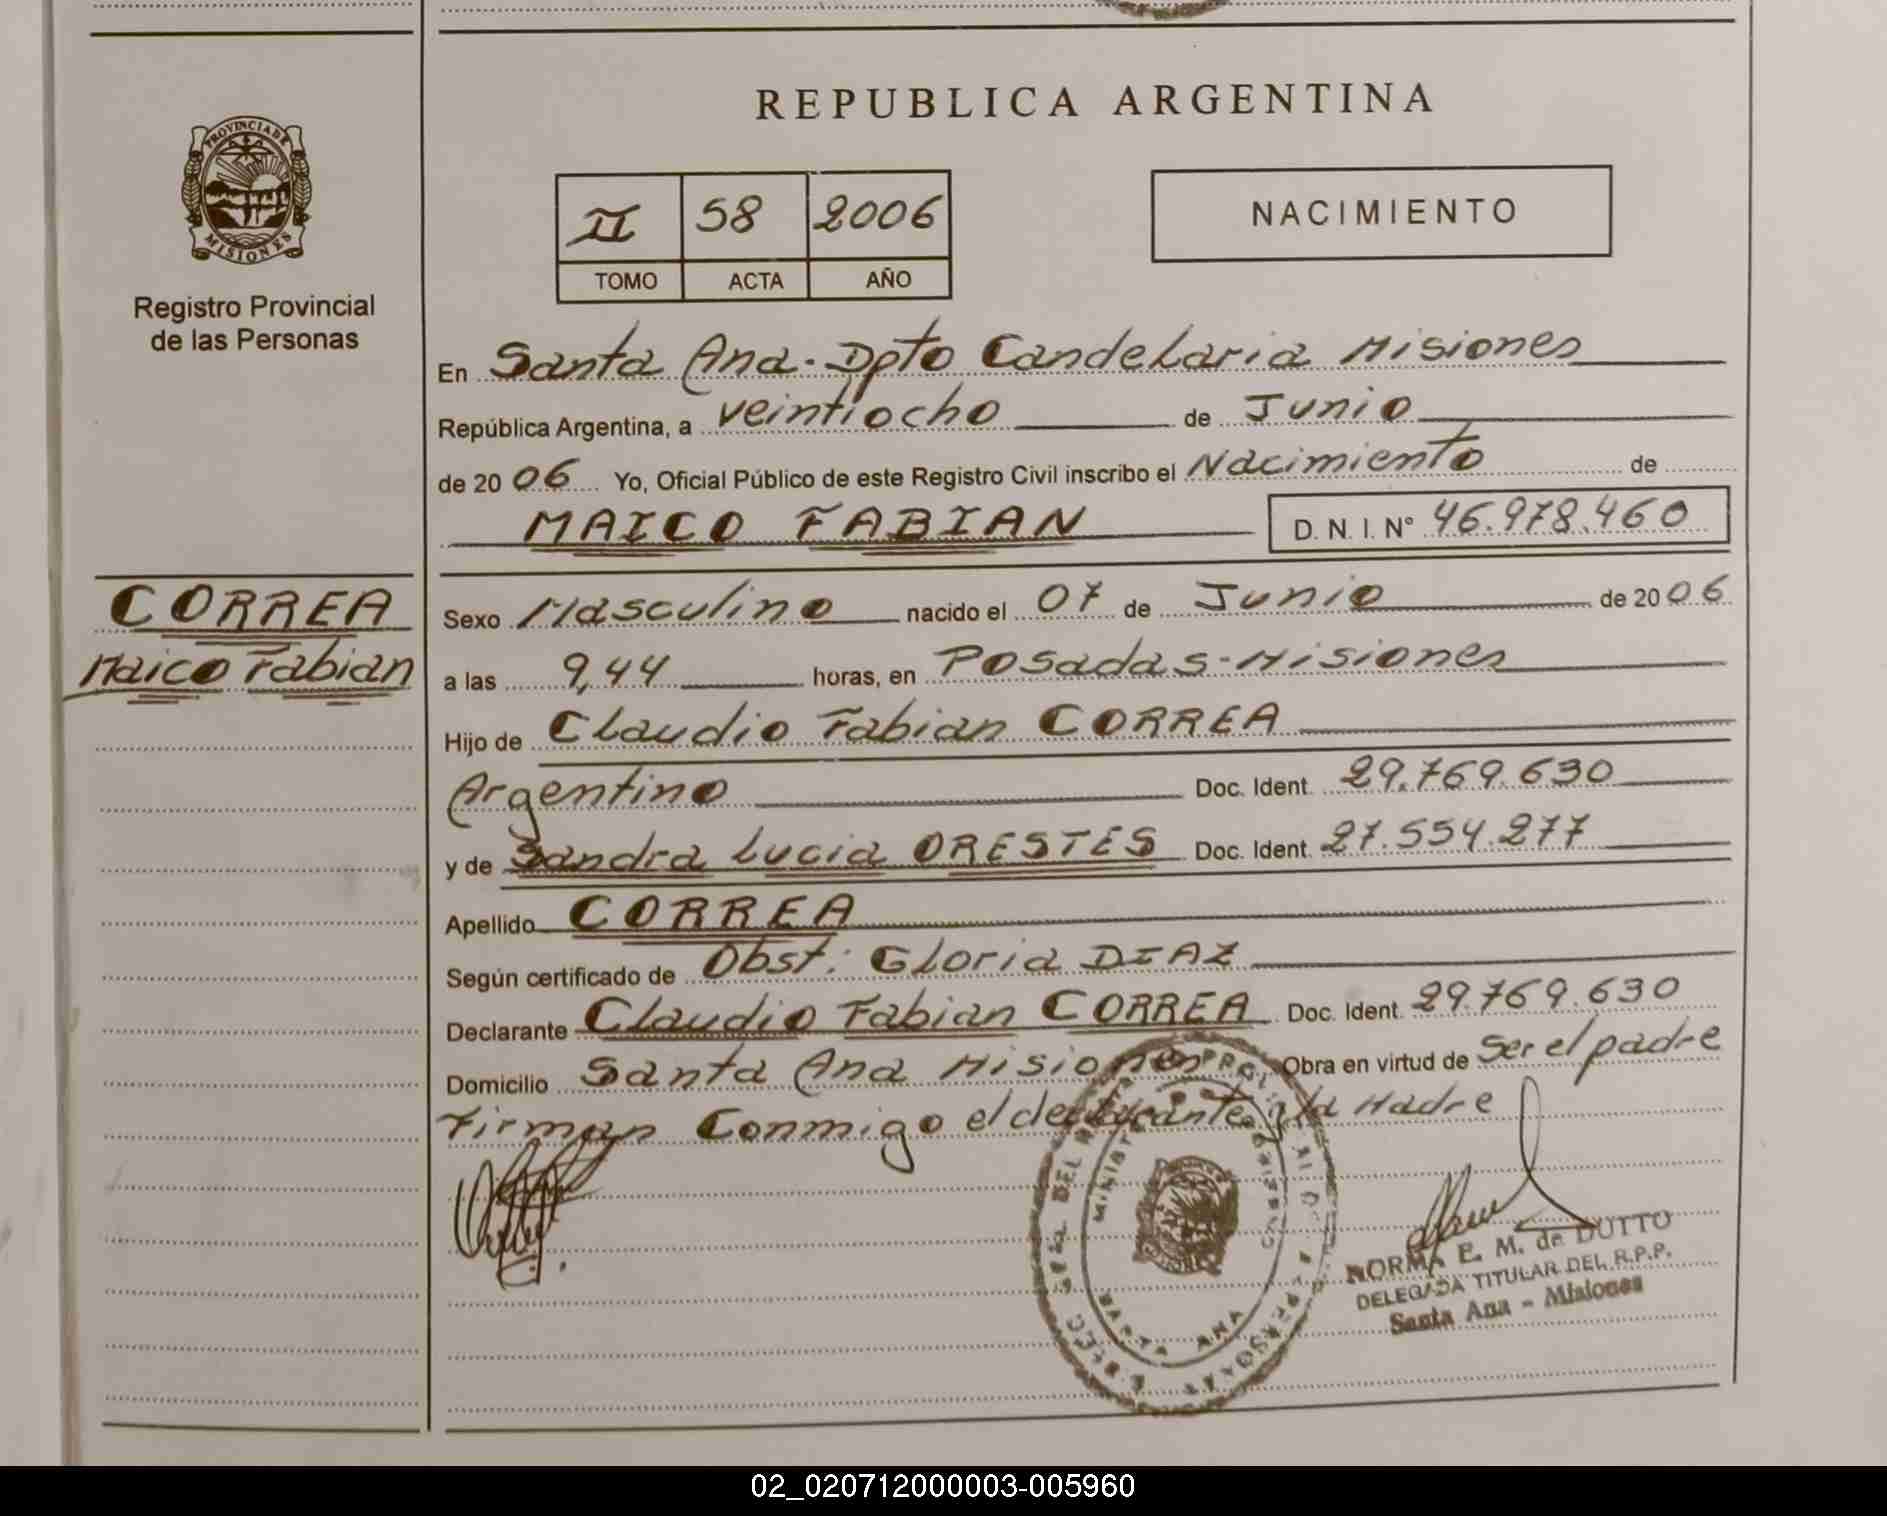 REPUBLICA ARGENTINA
PROVINCIA DE
MISIONES
Registro Provincial
de las Personas
II 58 2006
TOMO ACTA AÑO
NACIMIENTO
En Santa Ana - Dpto Candelaria Misiones
República Argentina, a veintiocho de Junio
de 2006 Yo, Oficial Público de este Registro Civil inscribo el Nacimiento de
MAICO FABIAN D. N. I. N° 46.978.460
CORREA
Maico Fabian
Sexo Masculino nacido el 07 de Junio de 2006
a las 9,44 horas, en Posadas - Misiones
Hijo de Claudio Fabian CORREA
Argentino Doc. Ident. 29.769.630
y de Sandra Lucia ORESTES Doc. Ident. 27.554.277
Apellido CORREA
Según certificado de Obst: Gloria DIAZ
Declarante Claudio Fabian CORREA Doc. Ident. 29.769.630
Domicilio Santa Ana Misiones Obra en virtud de Ser el padre
Firman Conmigo el declarante y la Madre
SANTA ANA
NORMA E. M. de DUTTO
DELEGADA TITULAR DEL R.P.P.
Santa Ana - Misiones
02_020712000003-005960